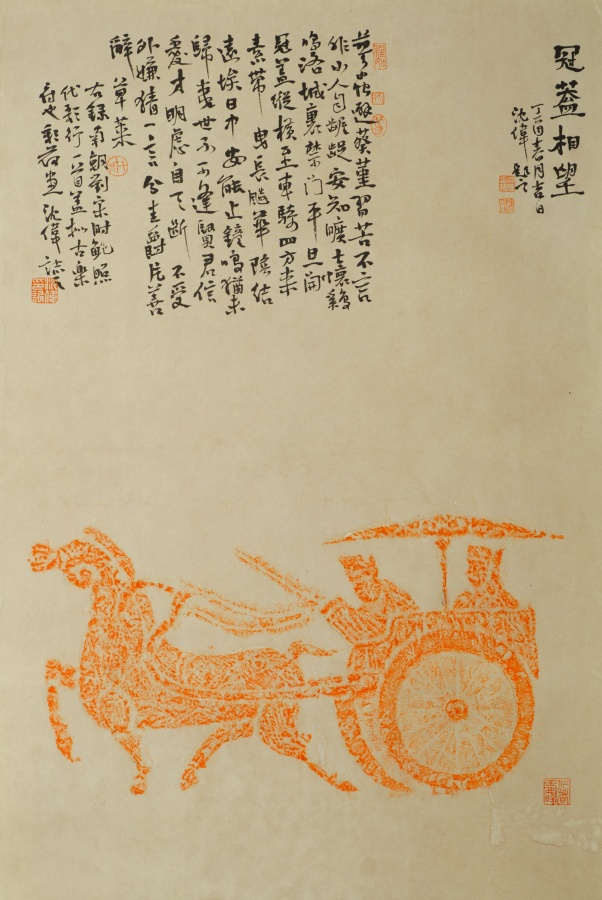 冠蓋相望
丁酉春月吉日
沈偉題
蓼蟲避葵堇習苦不言
非小人自齷齪安知曠士懷雞
鳴洛城裏禁門平旦開
冠蓋縱橫至車騎四方來
素帶曳長飆華結
遠埃日中安能止鐘鳴猶未
歸夷世不可逢賢君信
愛才明慮自天斷不受
外嫌猜一言分圭爵片善
辭草萊
右錄南朝劉宋時鮑照
代歌行一首蓋擬古樂
府也沈偉誌